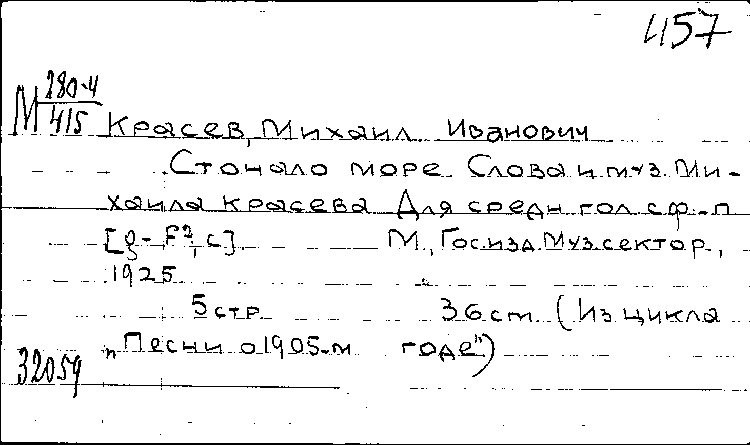 4157
М 280-4
415
Красев, Михаил Иванович
Стонало море. Слова и муз. Ми-
хаила Красева Для средн гол. с ф.-п
[g-f², c] М., Гос. изд. Муз. сектор,
1925
5 стр 36 cm (Из цикла
"Песни о 1905-м годе")
32059